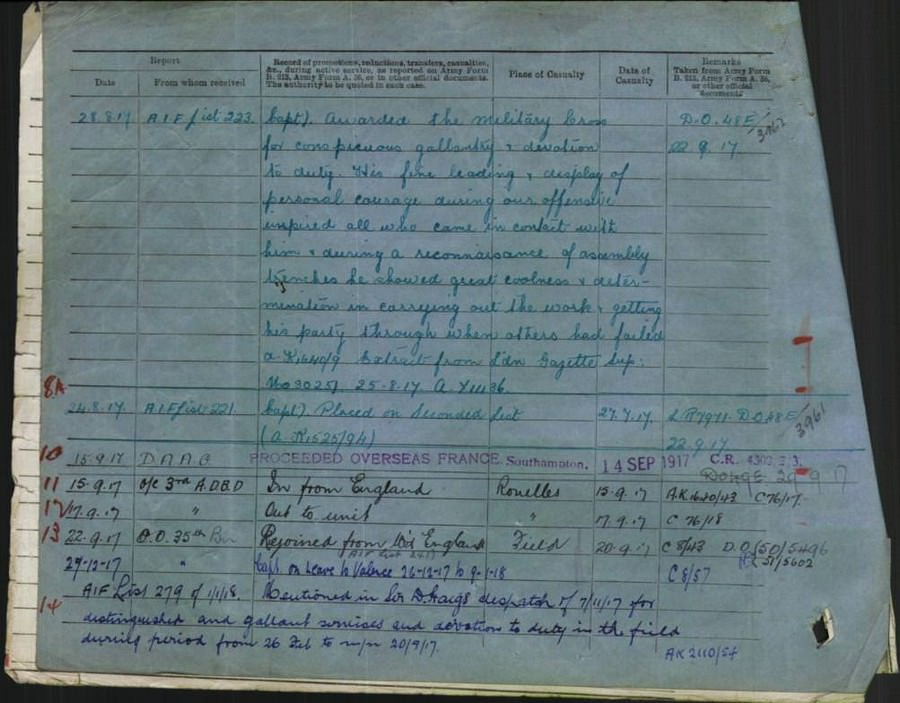 Report
Date
From whom received
Record of promotions, reductions, transfers, casualties,
&c., during active service, as reported on Army Form
B. 213, Army Form A. 36, or in other official documents.
The authority to be quoted in each case.
Place of Casualty
Date of
Casualty
Remarks
Taken from Army Form
B. 213, Army Form A. 36,
or other official
documents
28.8.17 A.I.F. List 223. Capt). Awarded the Military Cross D.O. 48E/
for conspicuous gallantry & devotion 22.9.17
to duty. His fine leading & display of
personal courage during our offensive
inspired all who came in contact with
him & during a reconnaisance of assembly
trenches he showed great coolness & deter-
mination in carrying out the work & getting
his party through when others had failed
Extract from Ldn Gazette Sup:
25.8.17.
8A
24.8.17. A.I.F. List 221. Capt). Placed on Seconded List 27.7.17. D.O. 48E/3961
(a.K1525/94) 22.9.17
10 15.9.17 D A A G PROCEEDED OVERSEAS FRANCE. Southampton. 14 SEP 1917 C.R.
11 15.9.17 o/c 3rd A.D.B.D In from England Rouelles 15.9.17 C76/17
17.9.17 " Out to unit " 17.9.17 C 76/18
13 22.9.17 C.O. 35th Bn Rejoined from England Field 20.9.17 C 8/43 D.O./50/5496
51/5602
29-12-17 " Capt. on Leave to Valence 26-12-17 to 9-1-18 C8/57
14 AIF List 279 of 1/1/18. Mentioned in Sir D. Haigs despatch of 7/11/17 for
distinguished and gallant services and devotion to duty in the field
during period from 26 Feb to m/n 20/9/17.
AK 2110/54